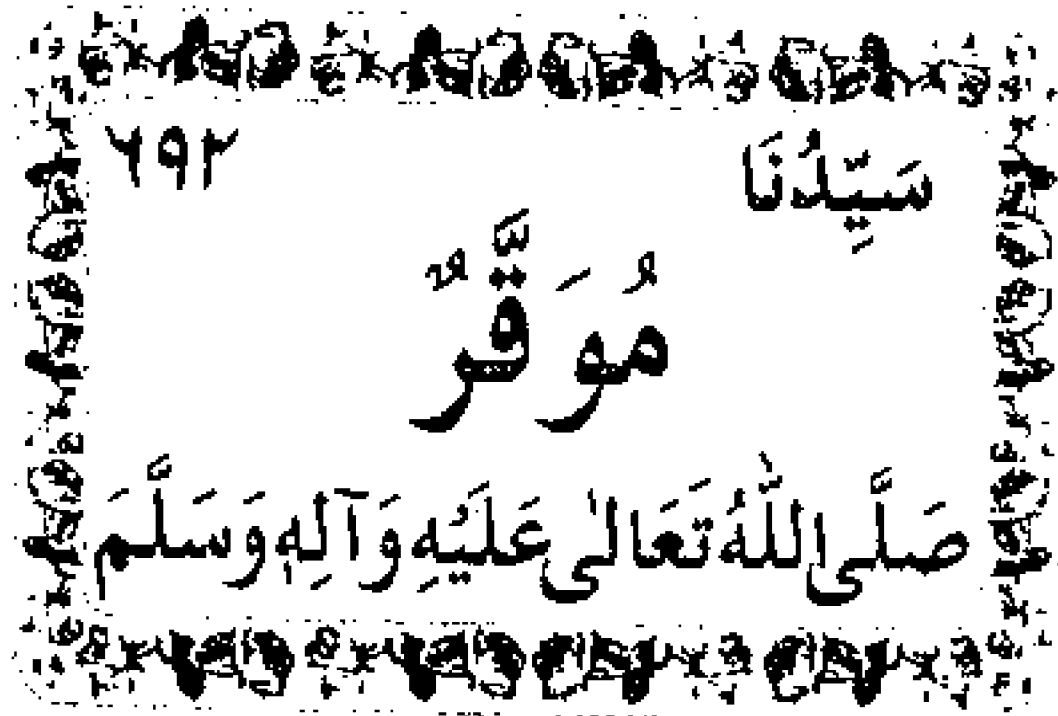 سَيِّدُنَا ٦٩٢
مُوَقَّرٌ
صَلَّى اللّٰهُ تَعَالٰى عَلَيْهِ وَآلِهٖ وَسَلَّمَ